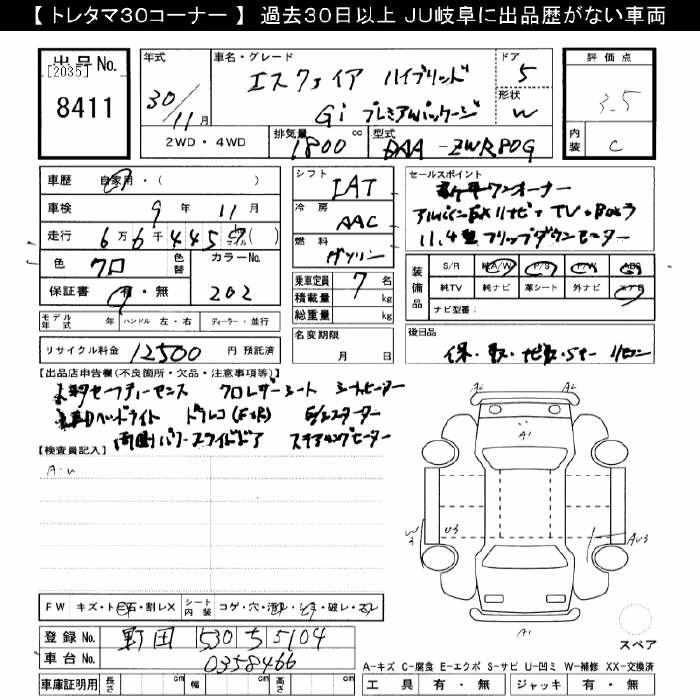 【 トレタマ30コーナー 】 過去30日以上 JU岐阜に出品歴がない車両
出品No.
[2035]
8411
年式
30/11月
車名・グレード
エスクァイア ハイブリッド
Gi プレミアムパッケージ
ドア
5
形状
W
評価点
3.5
内装
C
2WD・4WD
排気量
1800 cc
型式
DAA-ZWR80G
車歴 自家用・( )
車検 9年 11月
走行 6万6千445 マイル( )
色 クロ 色替 カラーNo. 202
保証書 有・無
モデル年式 年 ハンドル 左・右 ディーラー・並行
リサイクル料金 12500 円 預託済
シフト
IAT
冷房
AAC
燃料
ガソリン
乗車定員 7 名
積載量 kg
総重量 kg
名変期限
月 日
セールスポイント
ワンオーナー
アルパインBIGXナビ・TV・Bカメラ
11.4型フリップダウンモニター
装備品
S/R A/W P/S P/W ABS
純TV 純ナビ 革シート 外ナビ エアB
ナビ型番:
後日品
保・取・ナビ取・Sキー リモコン
【出品店申告欄(不良箇所・欠品・注意事項等)】
セーフティーセンス クロレザーシート シートヒーター
LEDヘッドライト ドラレコ(F・R) E/gスターター
両側パワースライドドア ステアリングヒーター
【検査員記入】
A・U
A2 A2
A1
W3 U3
AU3
A1
スペア
FW キズ・トビ石・割レX シート内装 コゲ・穴・汚レ・シミ・破レ・スレ
登録No. 野田 530 ち 5104
車台No. 0358466
車庫証明用 長さ cm 幅 cm 高さ cm
A-キズ C-腐食 E-エクボ S-サビ U-凹ミ W-補修 XX-交換済
工具 有・無 ジャッキ 有・無